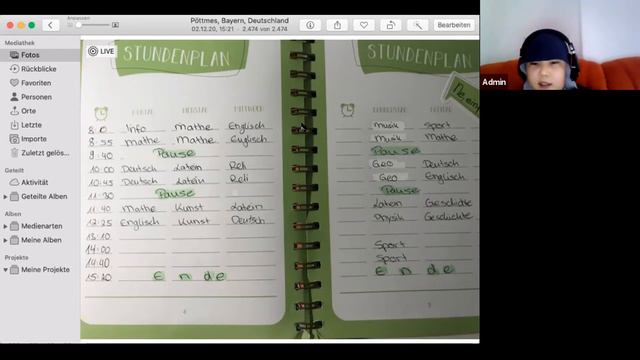 Anpassen
Pöttmes, Bayern, Deutschland
02.12.20, 15:21 • 2.474 von 2.474
Bearbeiten
Mediathek
Fotos
Rückblicke
Favoriten
Personen
Orte
Letzte
Importe
Zuletzt gelös...
Geteilt
Aktivität
Geteilte Alben
Alben
Medienarten
Meine Alben
Projekte
Meine Projekte
LIVE
STUNDENPLAN
MONTAG DIENSTAG MITTWOCH
Info Mathe Englisch
8:55 Mathe Mathe Englisch
9:40 Pause
10:00 Deutsch Latein Reli
10:45 Deutsch Latein Reli
11:30 Pause
11:40 Mathe Kunst Latein
12:25 Englisch Kunst Deutsch
13:10
14:00
14:40
15:20 Ende
4
STUNDENPLAN
DONNERSTAG FREITAG
Musik Sport
Musik Mathe
Pause
Geo Deutsch
Geo Englisch
Pause
Latein Geschichte
Physik Geschichte
Sport
Sport
Ende
5
Admin